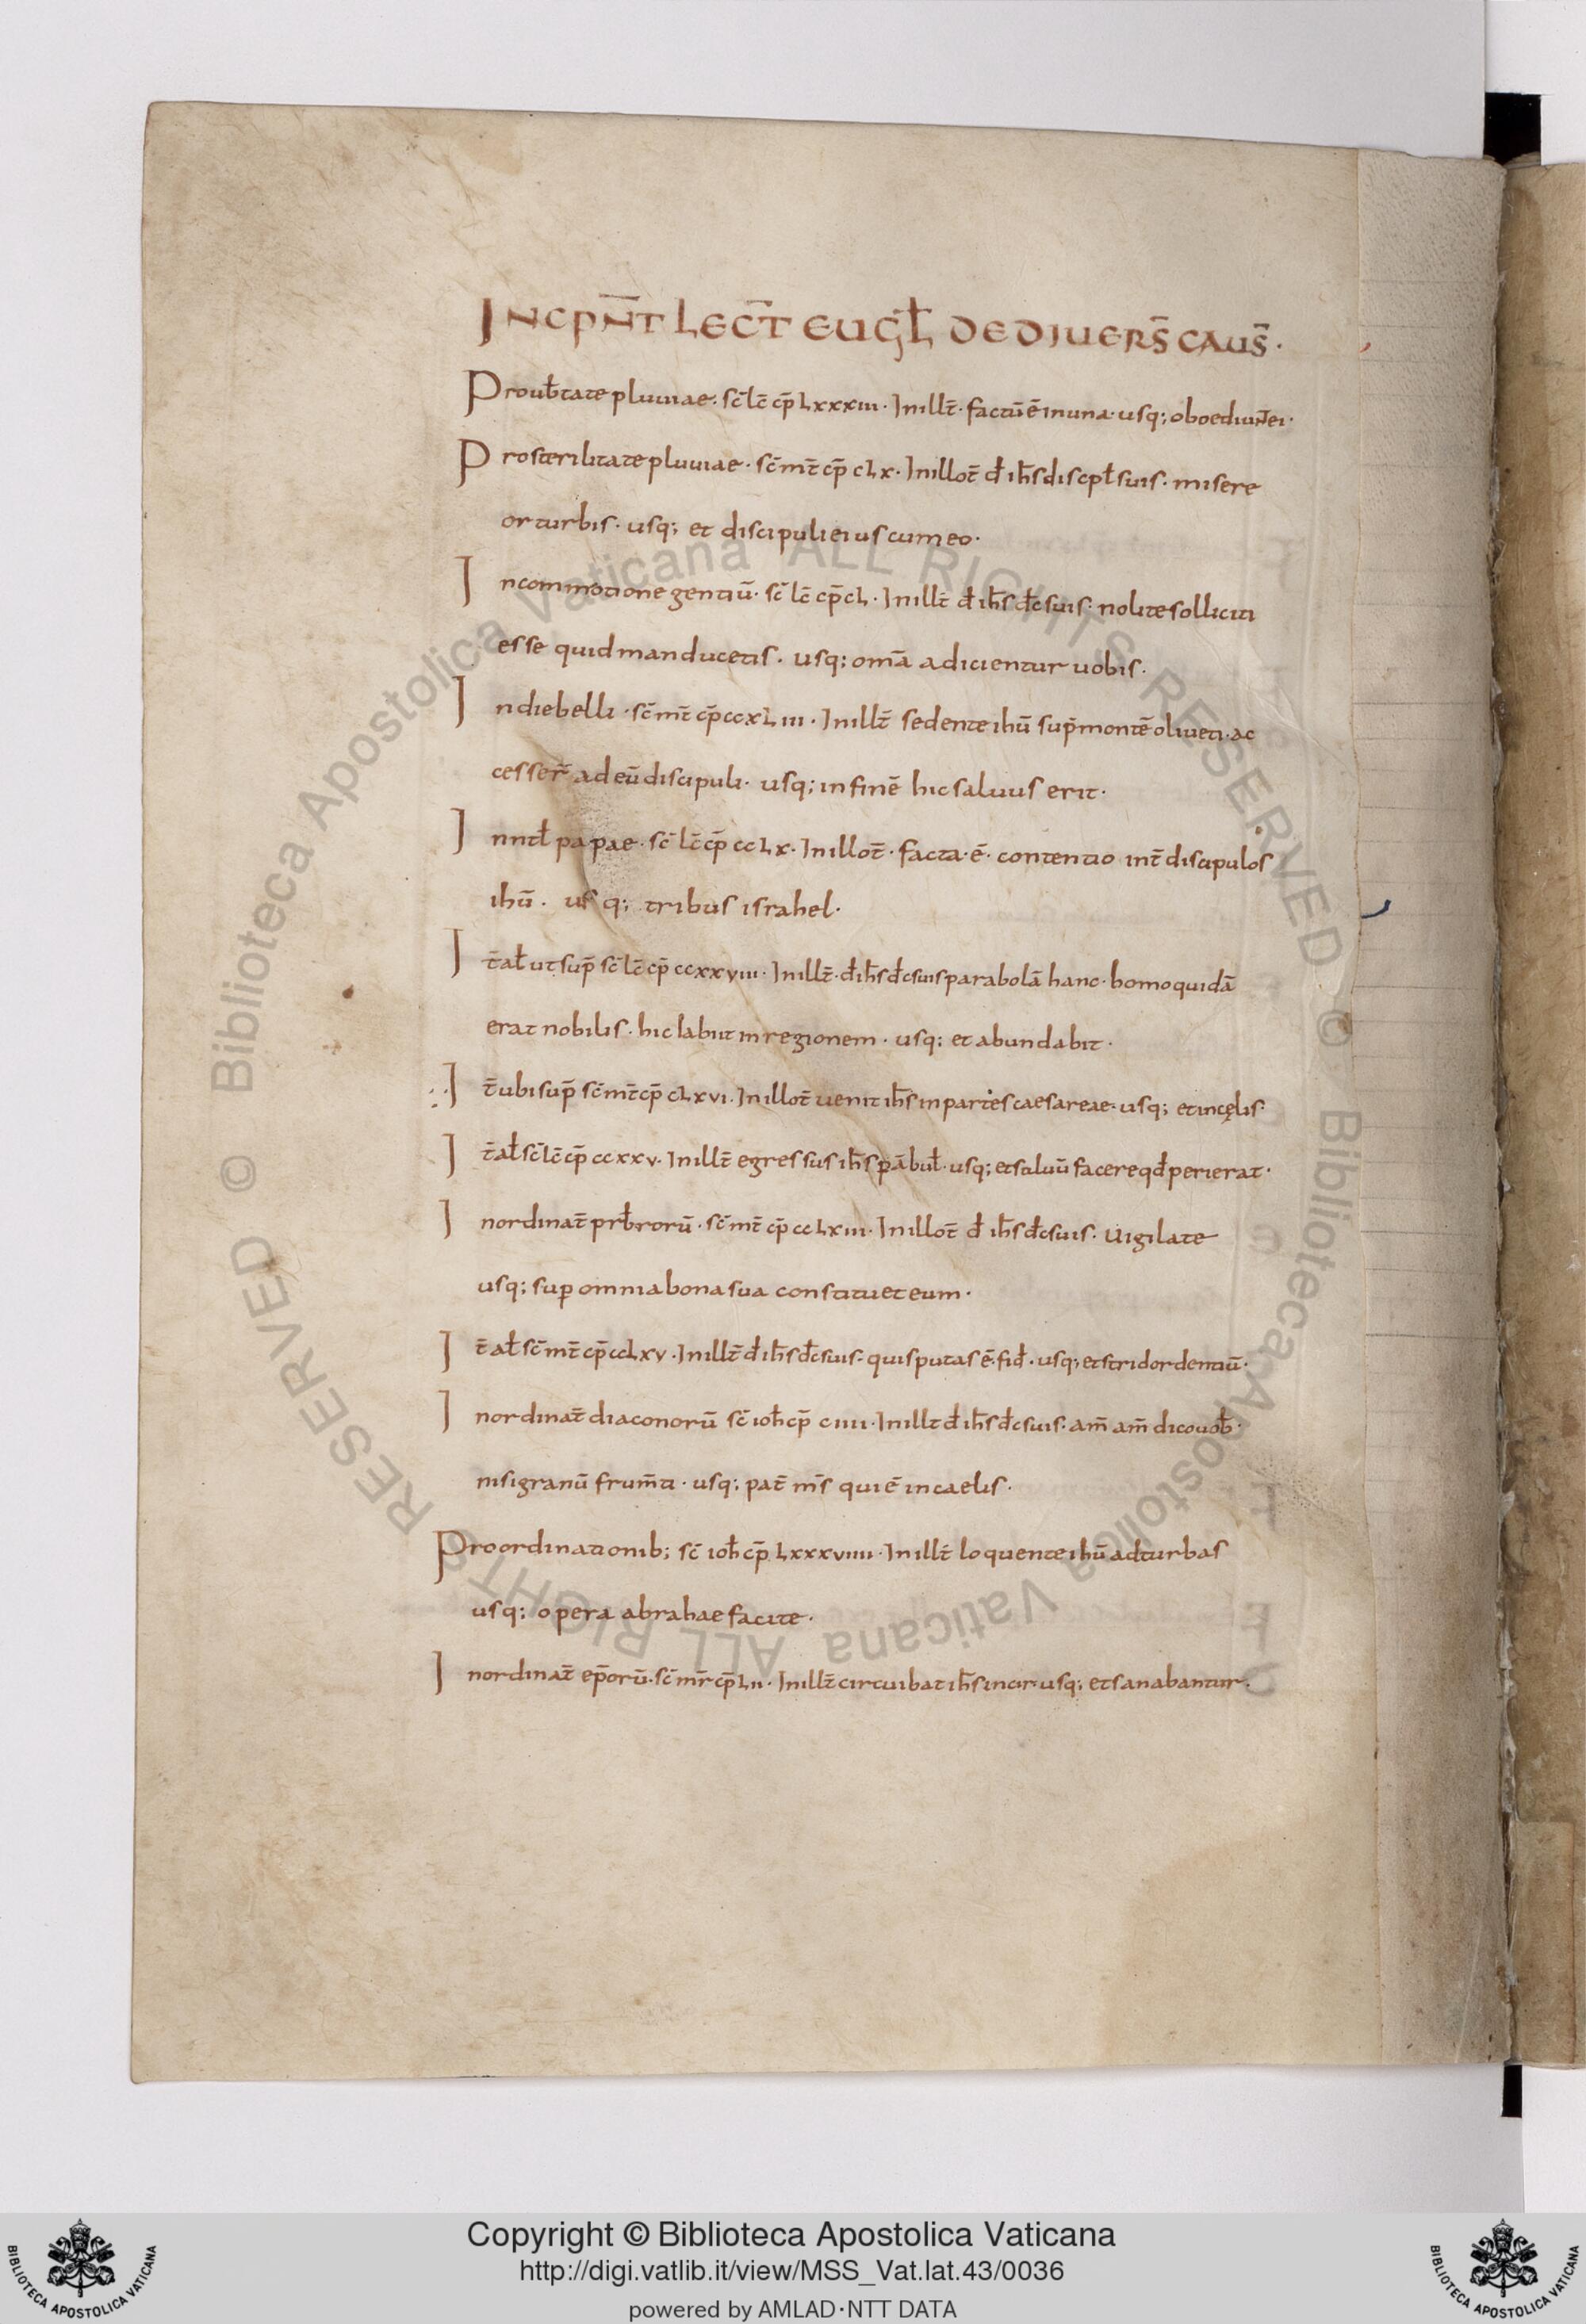 INCPN̄T LEC̄T EUGŁ DE DIUERS̄ CAUS̄·
Pro ubtate pluuiae· sc̄ lc̄ cp̄ Lxxxiii· In illt̄· factū ē in una· usq; oboediuNt̄ ei·
Pro sterilitate pluuiae· sc̄ mt̄ cp̄ cLx· In illot̄ đ ih̄s discpł suis· misere
or turbis· usq; et discipuli eius cum eo·
In commotione gentiū· sc̄ lc̄ cp̄ cL· In illt̄ đ ih̄s đc suis· nolite solliciti
esse quid manducetis· usq; om̄a adicientur uobis·
In die belli· sc̄ mt̄ cp̄ ccxLiii· In illt̄ sedente ihū sup̄ montē oliueti· ac
cesser̄ ad eū discipuli· usq; in finē hic saluus erit·
In ntł papae· sc̄ lc̄ cp̄ ccLx· In illot̄· facta· ē· contentio int̄ discipulos
ihū· usq; tribus israhel·
It̄ ał ut sup̄ sc̄ lc̄ cp̄ ccxxviii· In illt̄· đ ih̄s đc suis parabolā hanc· homo quidā
erat nobilis· hic labiit in regionem· usq; et abundabit·
It̄ ubi sup̄ sc̄ mt̄ cp̄ cLxvi· In illot̄ uenit ih̄s in partes caesareae· usq; et in cęlis·
It̄ ał sc̄ lc̄ cp̄ ccxxv· In illt̄ egressus ih̄s pābuł· usq; et saluū facere qđ perierat·
In ordinat̄ prbrorū· sc̄ mt̄ cp̄ ccLxiii· In illot̄ đ ih̄s đc suis· Uigilate
usq; sup omnia bona sua constituet eum·
It̄ ał sc̄ mt̄ cp̄ ccLxv· In illt̄ đ ih̄s đc suis· quis putas ē· fiđ· usq; et stridor dentiū·
In ordinat̄ diaconorū sc̄ ioħ cp̄ ciiii· In illt đ ih̄s đc suis· am̄ am̄ dico uob̄·
nisi granū frum̄ti· usq; pat̄ m̄s qui ē in caelis·
Pro ordinationib; sc̄ ioħ cp̄ Lxxxviiii· In illt̄ loquente ihū ad turbas
usq; opera abrahae facite·
In ordinat̄ ep̄orū· sc̄ mr̄ cp̄ Lii· In illt̄ circuibat ih̄s in cir· usq; et sanabantur·
Copyright © Biblioteca Apostolica Vaticana
http://digi.vatlib.it/view/MSS_Vat.lat.43/0036
powered by AMLAD·NTT DATA
BIBLIOTECA APOSTOLICA VATICANA
BIBLIOTECA APOSTOLICA VATICANA
© Biblioteca Apostolica Vaticana ALL RIGHTS RESERVED © Biblioteca Apostolica Vaticana ALL RIGHTS RESERVED